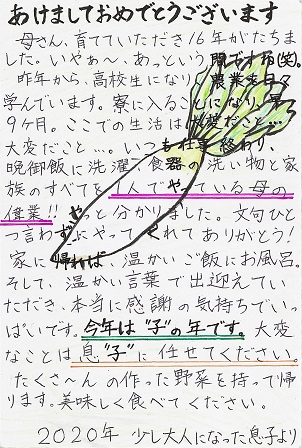 あけましておめでとうございます
母さん、育てていただき16年がたちま
した。いやぁ〜、あっという間ですね(笑)。
昨年から、高校生になり、農業を日々
学んでいます。寮に入ることになり、早
9ヶ月。ここでの生活は大変だこと…
大変だこと…。いつも仕事終わり、
晩御飯に洗濯、食器の洗い物と家
族のすべてを1人でやっている母の
偉業!!やっと分かりました。文句ひと
つ言わずにやってくれてありがとう!
家に帰れば、温かいご飯にお風呂。
そして、温かい言葉で出迎えてい
ただき、本当に感謝の気持ちでいっ
ぱいです。今年は“子”の年です。大変
なことは息“子”に任せてください。
たくさ〜んの作った野菜を持って帰
ります。美味しく食べてください。
2020年 少し大人になった息子より